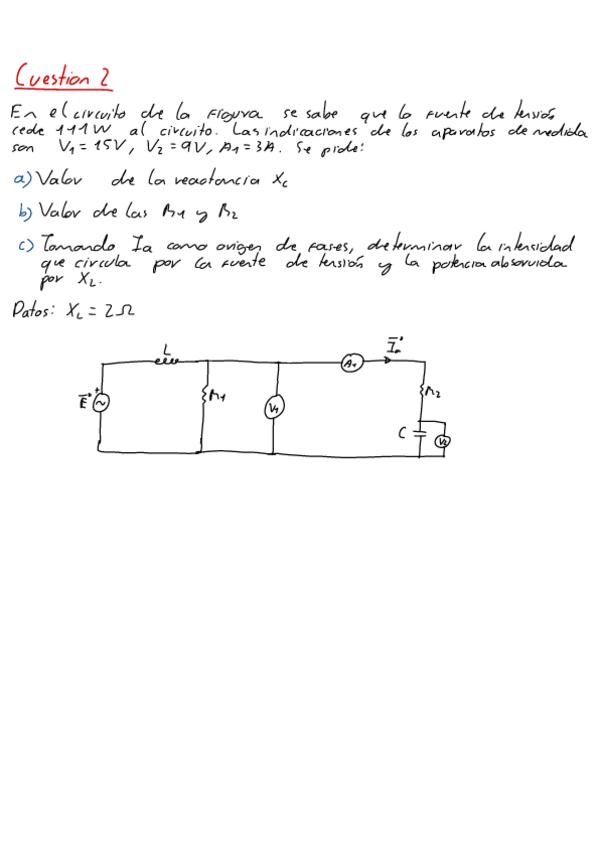 Cuestion 2
En el circuito de la figura se sabe que la fuente de tensión
cede 111W al circuito. Las indicaciones de los aparatos de medida
son V₁ = 15V, V₂ = 9V, A₁ = 3A. Se pide:
a) Valor de la reactancia Xc
b) Valor de las R1 y R2
c) Tomando Ia como origen de fases, determinar la intensidad
que circula por la fuente de tensión y la potencia absorvida
por XL.
Datos: XL = 2Ω
L
Ia
A1
E
+
R1
V1
R2
C
V2